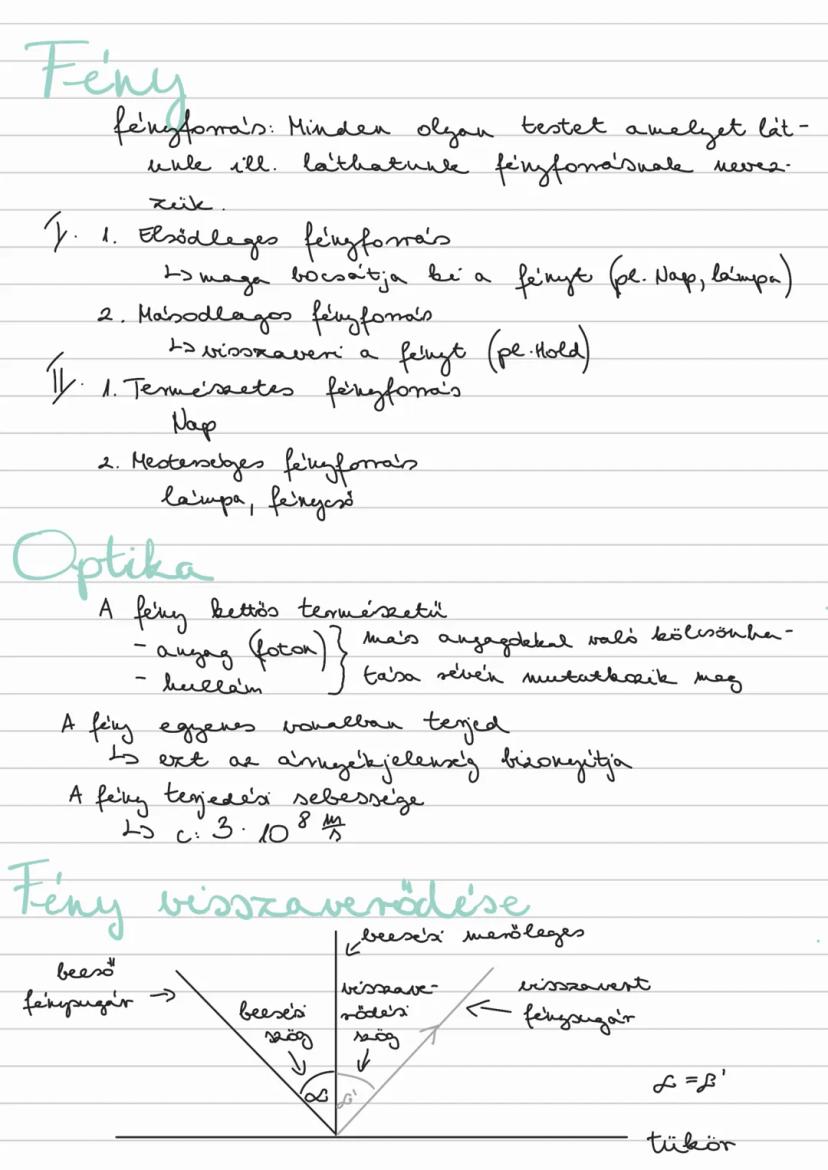 Fény
fényforrás: Minden olyan testet amelyet lát-
unk ill. láthatunk fényforrásnak nevez-
zük.
I. 1. Elsődleges fényforrás
↳ maga bocsátja ki a fényt (pl. Nap, lámpa)
2. Másodlagos fényforrás
↳ visszaveri a fényt (pl. Hold)
II. 1. Természetes fényforrás
Nap
2. Mesterséges fényforrás
lámpa, fénycső
Optika
A fény kettős természetű
- anyag (foton) } más anyagokkal való kölcsönha-
- hullám } tása révén mutatkozik meg
A fény egyenes vonalban terjed
↳ ezt az árnyékjelenség bizonyítja
A fény terjedési sebessége
↳ c: 3 · 10⁸ m/s
Fény visszaverődése
beesési merőleges
beeső
fénysugár →
beesési
szög
visszave-
rődési
szög
visszavert
← fénysugár
α
α = β'
tükör